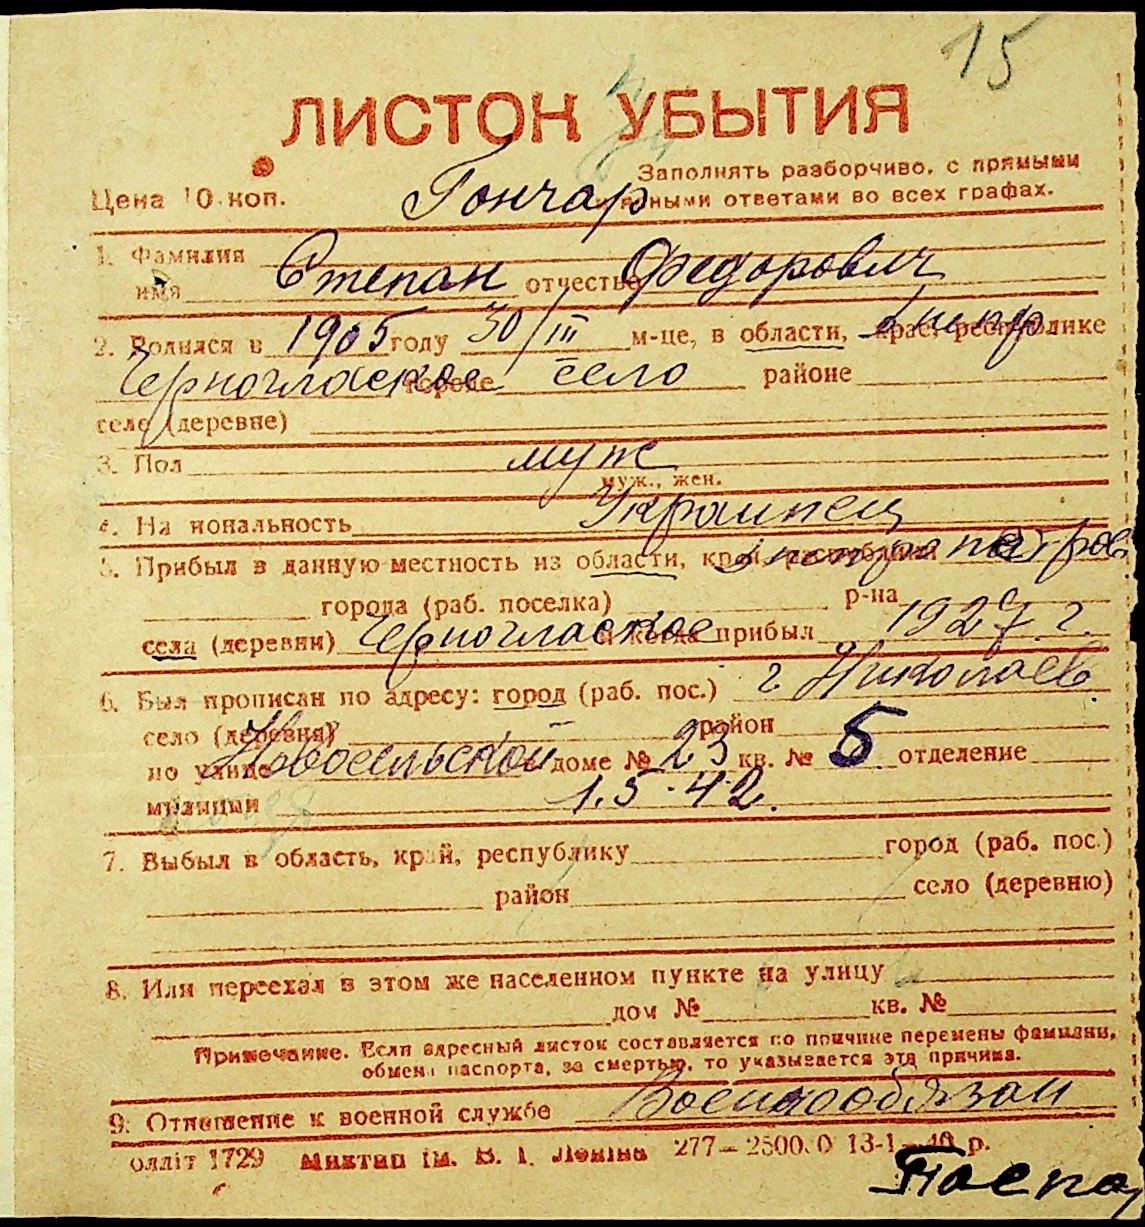 15
ЛИСТОК УБЫТИЯ
Заполнять разборчиво, с прямыми
Цена 10 коп. Гончар и ясными ответами во всех графах.
1. Фамилия
имя Степан отчество Федорович
2. Родился в 1905 году 30/III м-це, в области, крае, республике Днепр.
Черноглаское городе село районе
селе (деревне)
3. Пол муж
муж., жен.
4. Национальность Украинец
5. Прибыл в данную местность из области, края, республики Днепропетров
города (раб. поселка) р-на
села (деревни) Черноглаское и когда прибыл 1927 г.
6. Был прописан по адресу: город (раб. пос.) г. Николаев
село (деревня) район
по улице Новосельской доме № 23 кв. № 5 отделение
милиции 1.5.42.
7. Выбыл в область, край, республику город (раб. пос.)
район село (деревню)
8. Или переехал в этом же населенном пункте на улицу
дом № кв. №
Примечание. Если адресный листок составляется по причине перемены фамилии,
обмена паспорта, за смертью, то указывается эта причина.
9. Отношение к военной службе Военнообязан
олліт 1729 Миктип ім. В. І. Леніна 277—25000 13-1—40 р.